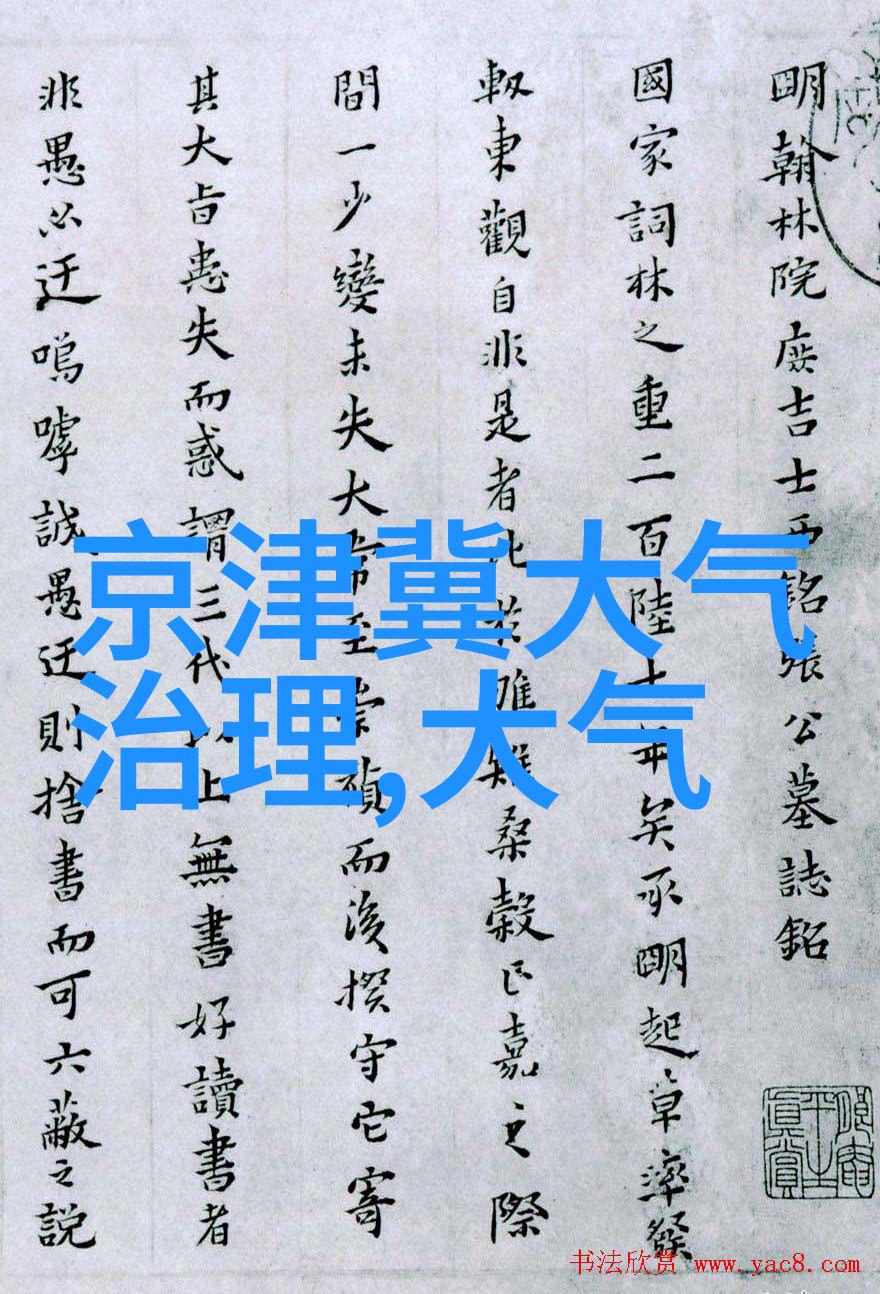 明翰林院庶吉士西銘張公墓誌銘
國家詞林之重二百陸十年矣承明起草率發
軔東觀自非是者比於雕雞桑穀正嘉之際
間一少變未失大常至崇禎而後揆守它寄
其大旨患失而惑謂三代以上無書好讀書者
非愚必迂嗚嘑誠愚迂則捨書而可六蔽之説
京津冀大气
治理,大气
书法欣赏 www.yac8.com